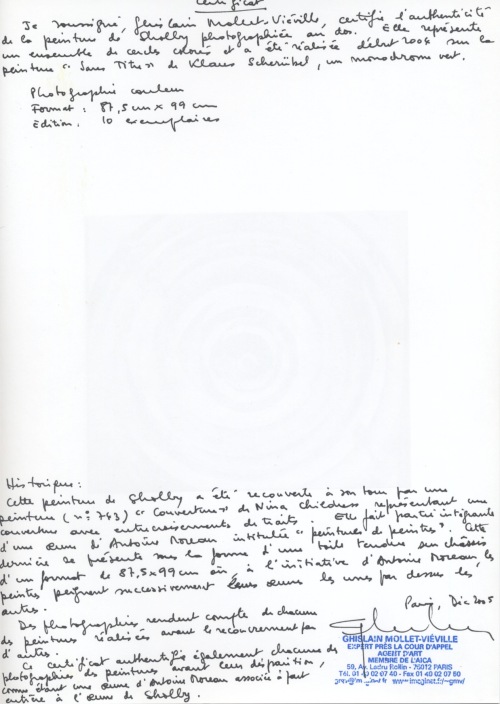 Certificat
Je soussigné, Ghislain Mollet-Viéville, certifie l'authenticité
de la peinture de Sholby photographiée au dos. Elle représente
un ensemble de cercles colorés et a été réalisée début 2004 sur la
peinture "Sans Titre" de Klaus Scherübel, un monochrome vert.
Photographie couleur
Format : 87,5 cm x 99 cm
Edition : 10 exemplaires
Historique :
Cette peinture de Sholby a été recouverte à son tour par une
peinture (n° 743) "Couverture" de Nina Childress représentant une
couverture avec entrecroisements de traits. Elle fait partie intégrante
d'une œuvre d'Antoine Moreau intitulée "peintures de peintres". Cette
dernière se présente sous la forme d'une toile tendue sur châssis
d'un format de 87,5 x 99 cm où, à l'initiative d'Antoine Moreau, les
peintres peignent successivement leurs œuvres les unes par dessus les
autres.
Des photographies rendent compte de chacune
des peintures réalisées avant le recouvrement par
d'autres.
Ce certificat authentifie également chacune des
photographies des peintures avant leur disparition,
comme étant une œuvre d'Antoine Moreau associée à part
entière à l'œuvre de Sholby.
Paris, Dec 2005
GHISLAIN MOLLET-VIÉVILLE
EXPERT PRÈS LA COUR D'APPEL
AGENT D'ART
MEMBRE DE L'AICA
59, Av. Ledru Rollin - 75012 PARIS
Tél. 01 40 02 07 40 - Fax 01 40 02 07 60